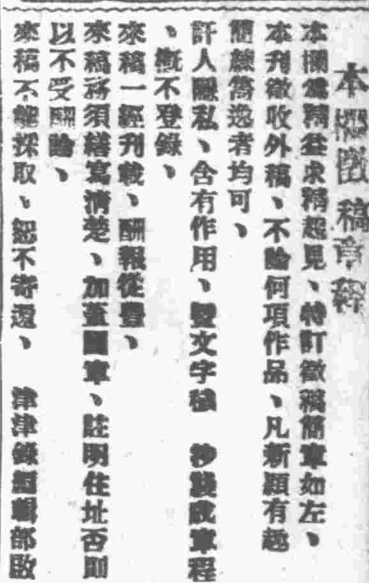 本欄徵稿章程
本欄爲精益求精起見、特訂徵稿簡章如左、
本刋徵收外稿、不論何項作品、凡新穎有趣
簡練雋逸者均可、
訐人隱私、含有作用、曁文字穢　抄襲成章程
、槪不登錄、
來稿一經刋載、酬報從豐、
來稿務須繕寫淸楚、加蓋圖章、註明住址否則
以不受酬論、
來稿不能採取、恕不寄還、　津津錄編輯部啟